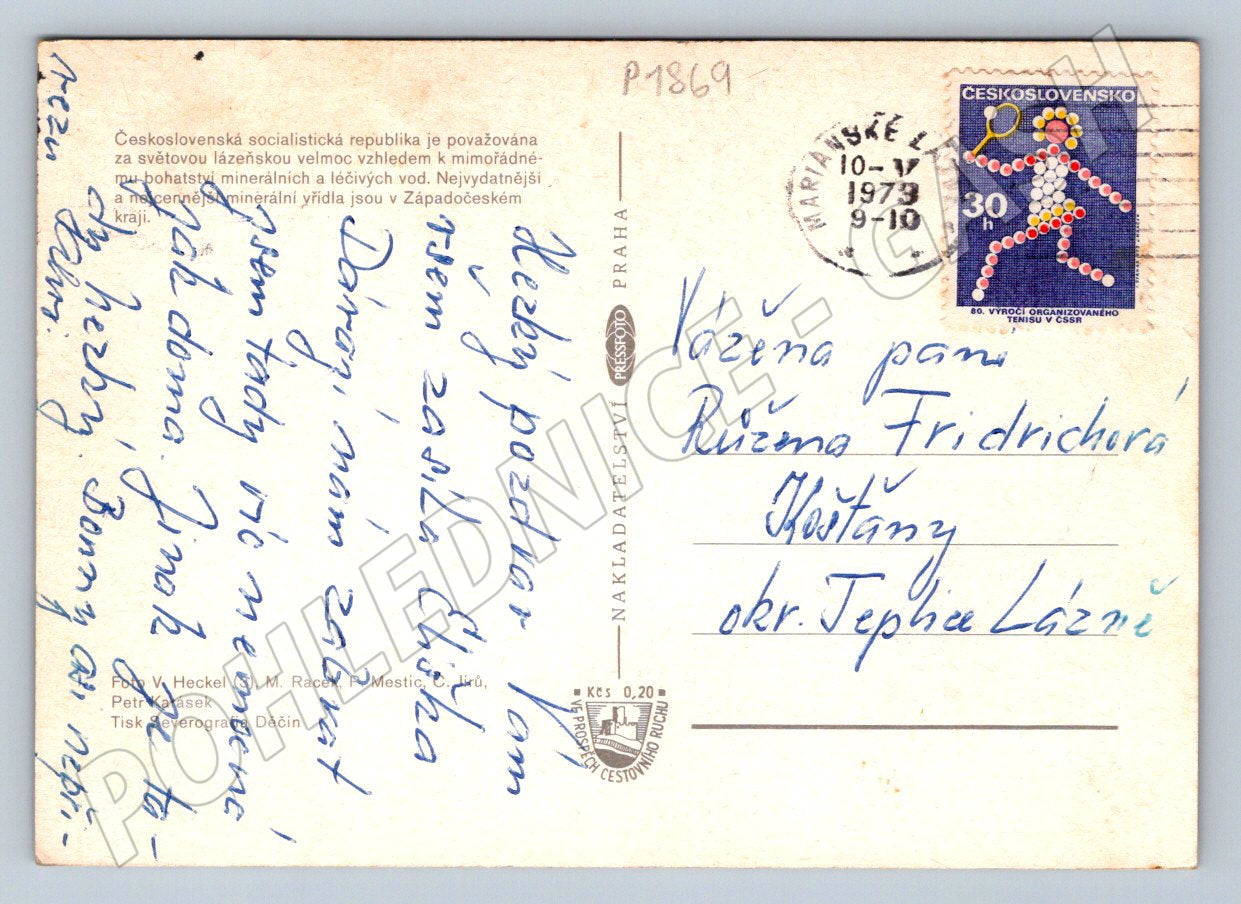 P1869
Československá socialistická republika je považována
za světovou lázeňskou velmoc vzhledem k mimořádné-
mu bohatství minerálních a léčivých vod. Nejvydatnější
a nejcennější minerální vřídla jsou v Západočeském
kraji.
Hezký pozdrav Vám
všem zasílá
nám
jsem tady nic nemocné
jak doma. Jinak je ta-
dy hezky.
Foto V. Heckel (3), M. Racek, P. Mestic, C. Jírů,
Petr Karásek
Tisk Severografia Děčín
NAKLADATELSTVÍ PRESSFOTO PRAHA
Kčs 0,20
VE PROSPĚCH CESTOVNÍHO RUCHU
MARIÁNSKÉ LÁZNĚ
10-V
1973
9-10
ČESKOSLOVENSKO
30
h
80. VÝROČÍ ORGANIZOVANÉHO
TENISU V ČSSR
Vážená paní
Růžena Fridrichová
Košťany
okr. Teplice Lázně
POHLEDNICE - GASH